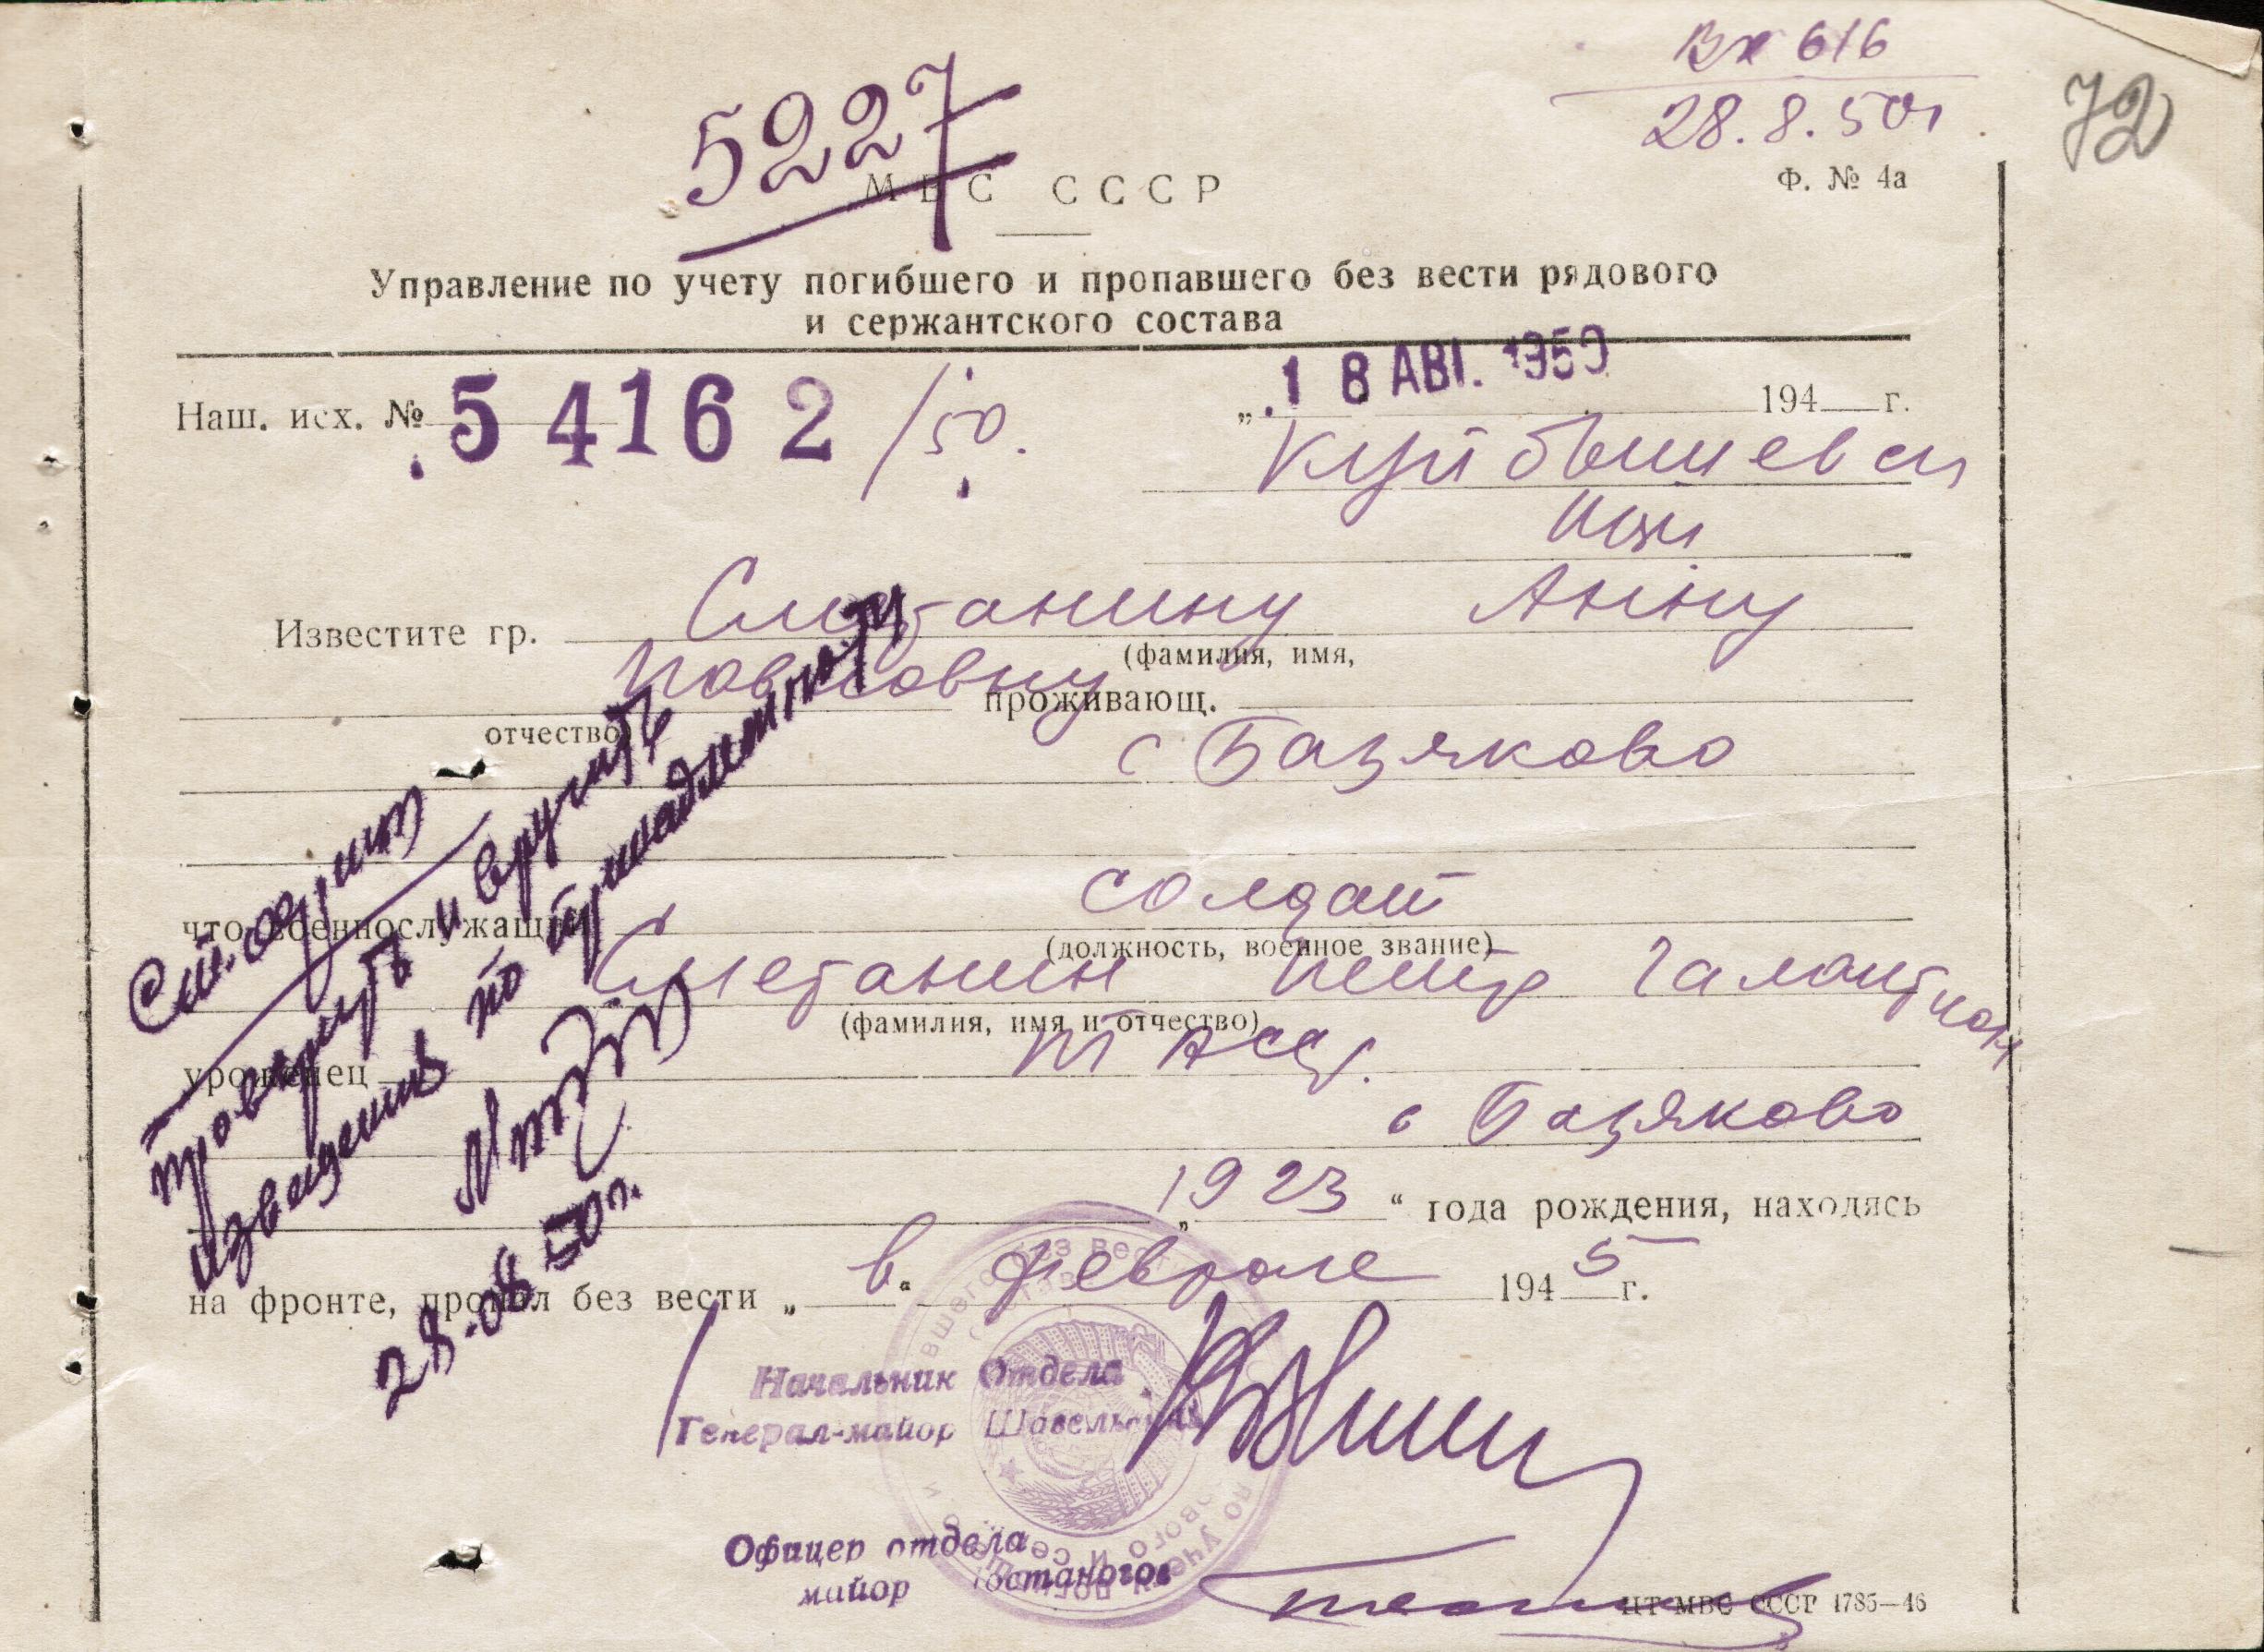 Вх 616
28.8.50г
72
5227
МВС СССР
Ф. № 4а
Управление по учету погибшего и пропавшего без вести рядового
и сержантского состава
Наш. исх. № 54162/50.
„ 18 АВГ. 1950 194 г.
Куйбышевск
Известите гр. Сметанину Анну
(фамилия, имя,
Павловну проживающ.
отчество)
с Базяково
что военнослужащий солдат
(должность, военное звание)
Сметанин Петр
(фамилия, имя и отчество)
уроженец ТАССР.
с Базяково
„ 1923 “ года рождения, находясь
на фронте, пропал без вести „ в “ феврале 1945 г.
проверить и вручить
извещение по принадлежности
28.08.50г.
Начальник Отдела
Генерал-майор Шавельский
Офицер отдела
майор Постаногов
ЦТ МВС СССР 1785—46